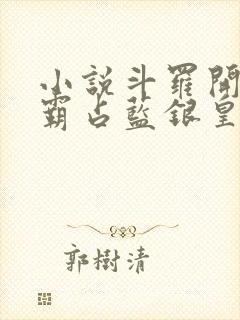 小說斗羅開
霸占藍銀皇
郭樹清